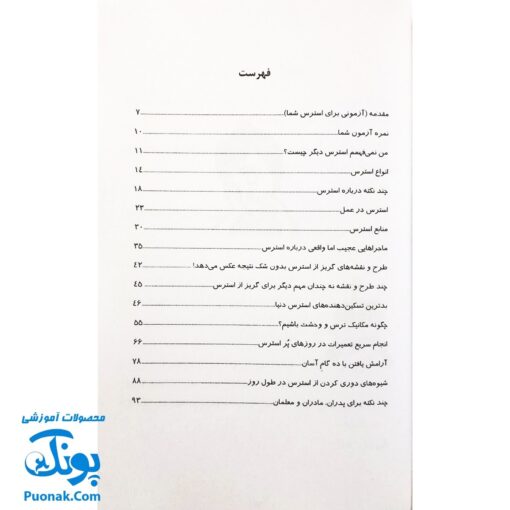 فهرست
مقدمه (آزمونی برای استرس شما) ۷
نمره آزمون شما ۱۰
من نمی‌فهمم استرس دیگر چیست؟ ۱۱
انواع استرس ۱۴
چند نکته درباره استرس ۱۸
استرس در عمل ۲۳
منابع استرس ۳۰
ماجراهایی عجیب اما واقعی درباره استرس ۳۵
طرح و نقشه‌های گریز از استرس بدون شک نتیجه عکس می‌دهد! ۴۲
چند طرح و نقشه نه چندان مهم دیگر برای گریز از استرس ۴۵
بدترین تسکین‌دهنده‌های استرس دنیا ۴۶
چگونه مکانیک ترس و وحشت باشیم؟ ۵۵
انجام سریع تعمیرات در روزهای پُر استرس ۶۶
آرامش یافتن با ده گامِ آسان ۷۸
شیوه‌های دوری کردن از استرس در طول روز ۸۸
چند نکته برای پدران، مادران و معلمان ۹۳
محصولات آموزشی
پونک
Puonak.Com